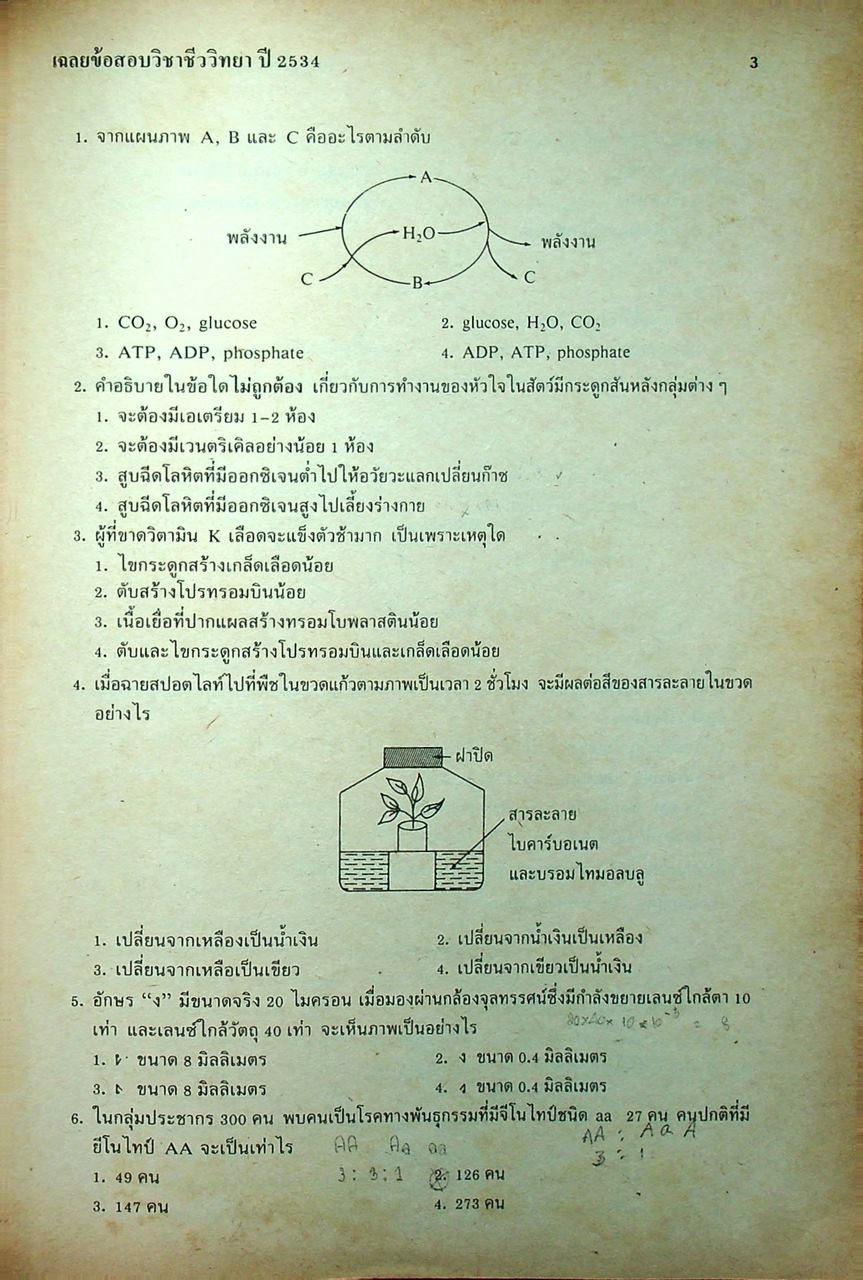 เฉลยข้อสอบวิชาชีววิทยา ปี 2534 3
1. จากแผนภาพ A, B และ C คืออะไรตามลำดับ
A
พลังงาน H₂O พลังงาน
C B C
1. CO₂, O₂, glucose 2. glucose, H₂O, CO₂
3. ATP, ADP, phosphate 4. ADP, ATP, phosphate
2. คำอธิบายในข้อใดไม่ถูกต้อง เกี่ยวกับการทำงานของหัวใจในสัตว์มีกระดูกสันหลังกลุ่มต่าง ๆ
1. จะต้องมีเอเตรียม 1-2 ห้อง
2. จะต้องมีเวนตริเคิลอย่างน้อย 1 ห้อง
3. สูบฉีดโลหิตที่มีออกซิเจนต่ำไปให้อวัยวะแลกเปลี่ยนก๊าซ
4. สูบฉีดโลหิตที่มีออกซิเจนสูงไปเลี้ยงร่างกาย
3. ผู้ที่ขาดวิตามิน K เลือดจะแข็งตัวช้ามาก เป็นเพราะเหตุใด
1. ไขกระดูกสร้างเกล็ดเลือดน้อย
2. ตับสร้างโปรทรอมบินน้อย
3. เนื้อเยื่อที่ปากแผลสร้างทรอมโบพลาสตินน้อย
4. ตับและไขกระดูกสร้างโปรทรอมบินและเกล็ดเลือดน้อย
4. เมื่อฉายสปอตไลท์ไปที่พืชในขวดแก้วตามภาพเป็นเวลา 2 ชั่วโมง จะมีผลต่อสีของสารละลายในขวด
อย่างไร
ฝาปิด
สารละลาย
ไบคาร์บอเนต
และบรอมไทมอลบลู
1. เปลี่ยนจากเหลืองเป็นน้ำเงิน 2. เปลี่ยนจากน้ำเงินเป็นเหลือง
3. เปลี่ยนจากเหลือเป็นเขียว 4. เปลี่ยนจากเขียวเป็นน้ำเงิน
5. อักษร “ง” มีขนาดจริง 20 ไมครอน เมื่อมองผ่านกล้องจุลทรรศน์ซึ่งมีกำลังขยายเลนซ์ใกล้ตา 10
เท่า และเลนซ์ใกล้วัตถุ 40 เท่า จะเห็นภาพเป็นอย่างไร
1. ขนาด 8 มิลลิเมตร 2. ง ขนาด 0.4 มิลลิเมตร
3. ขนาด 8 มิลลิเมตร 4. ขนาด 0.4 มิลลิเมตร
6. ในกลุ่มประชากร 300 คน พบคนเป็นโรคทางพันธุกรรมที่มีจีโนไทป์ชนิด aa 27 คน คนปกติที่มี
ยีโนไทป์ AA จะเป็นเท่าไร AA Aa aa AA : Aa A
3 : 1
1. 49 คน 3 : 3 : 1 2. 126 คน
3. 147 คน 4. 273 คน